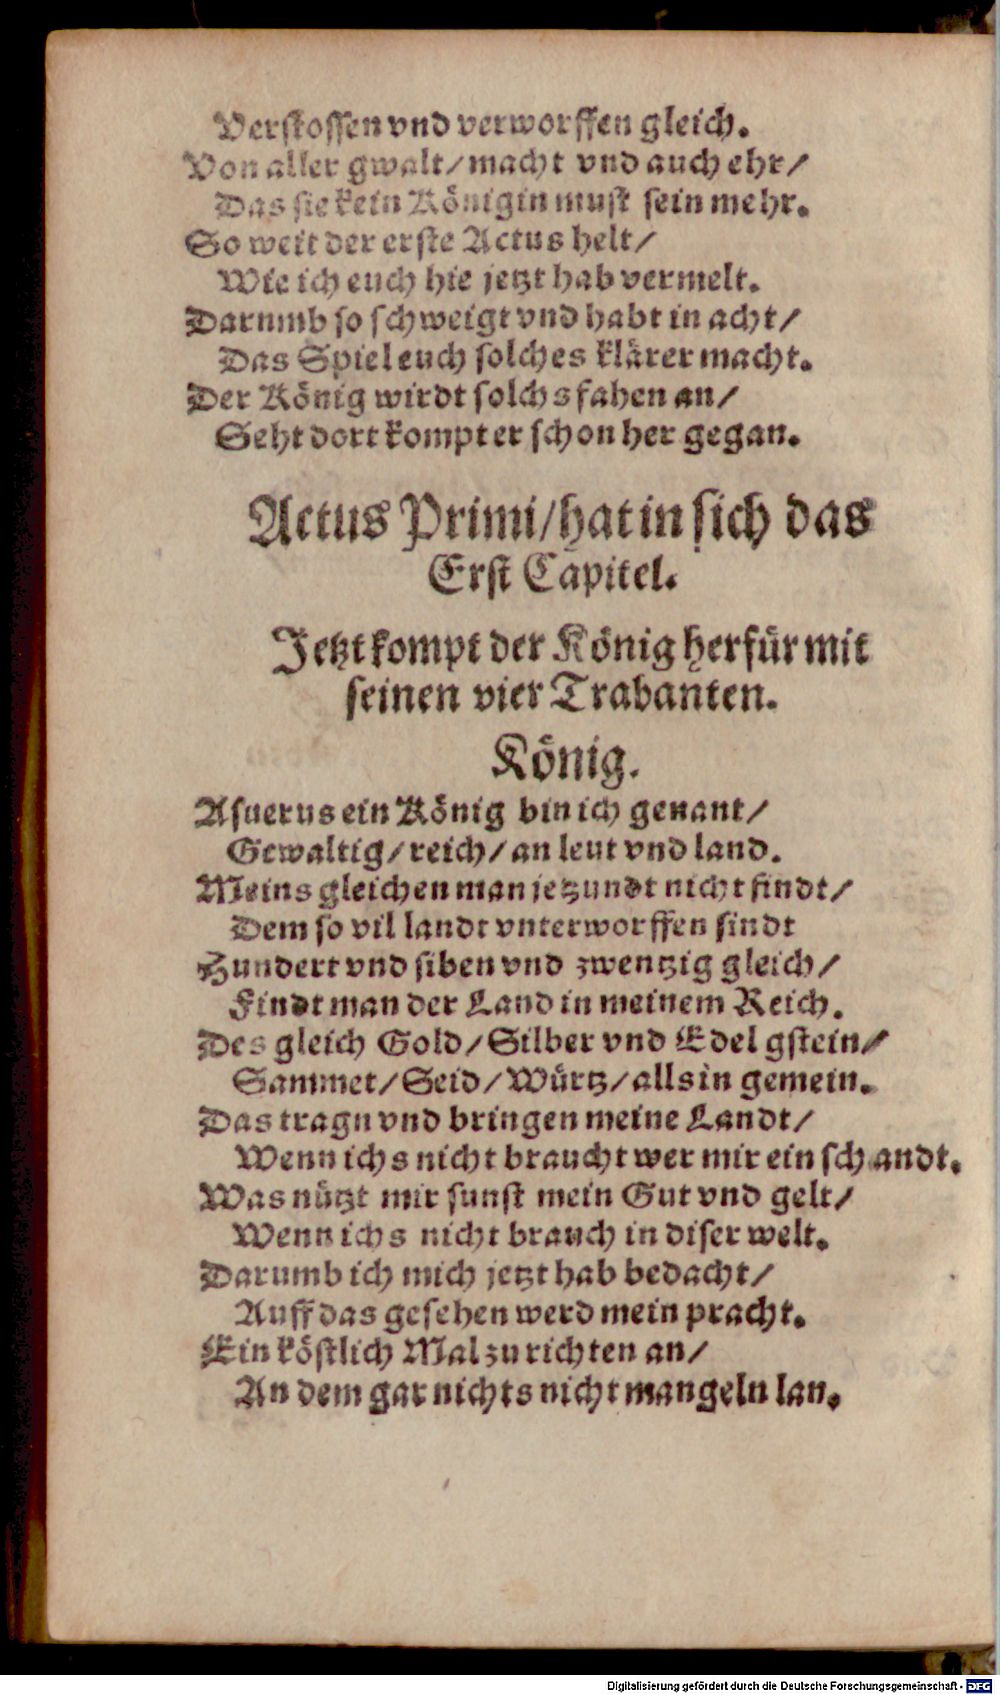 Verstossen vnd verworffen gleich.
Von aller gwalt/ macht vnd auch ehr/
Das sie kein Königin must sein mehr.
So weit der erste Actus helt/
Wie ich euch hie jetzt hab vermelt.
Darumb so schweigt vnd habt in acht/
Das Spiel euch solches klärer macht.
Der König wirdt solchs fahen an/
Seht dort kompt er schon her gegan.
Actus Primi/ hat in sich das
Erst Capitel.
Jetzt kompt der König herfür mit
seinen vier Trabanten.
König.
Asuerus ein König bin ich genant/
Gewaltig/ reich/ an leut vnd land.
Meins gleichen man jetzundt nicht findt/
Dem so vil landt vnterworffen sindt
Hundert vnd siben vnd zwentzig gleich/
Findt man der Land in meinem Reich.
Des gleich Gold/ Silber vnd Edel gstein/
Sammet/ Seid/ Würtz/ alls in gemein.
Das tragn vnd bringen meine Landt/
Wenn ichs nicht braucht wer mir ein schandt.
Was nützt mir sunst mein Gut vnd gelt/
Wenn ichs nicht brauch in diser welt.
Darumb ich mich jetzt hab bedacht/
Auff das gesehen werd mein pracht.
Ein köstlich Mal zu richten an/
An dem gar nichts nicht mangeln lan.
Digitalisierung gefördert durch die Deutsche Forschungsgemeinschaft - DFG